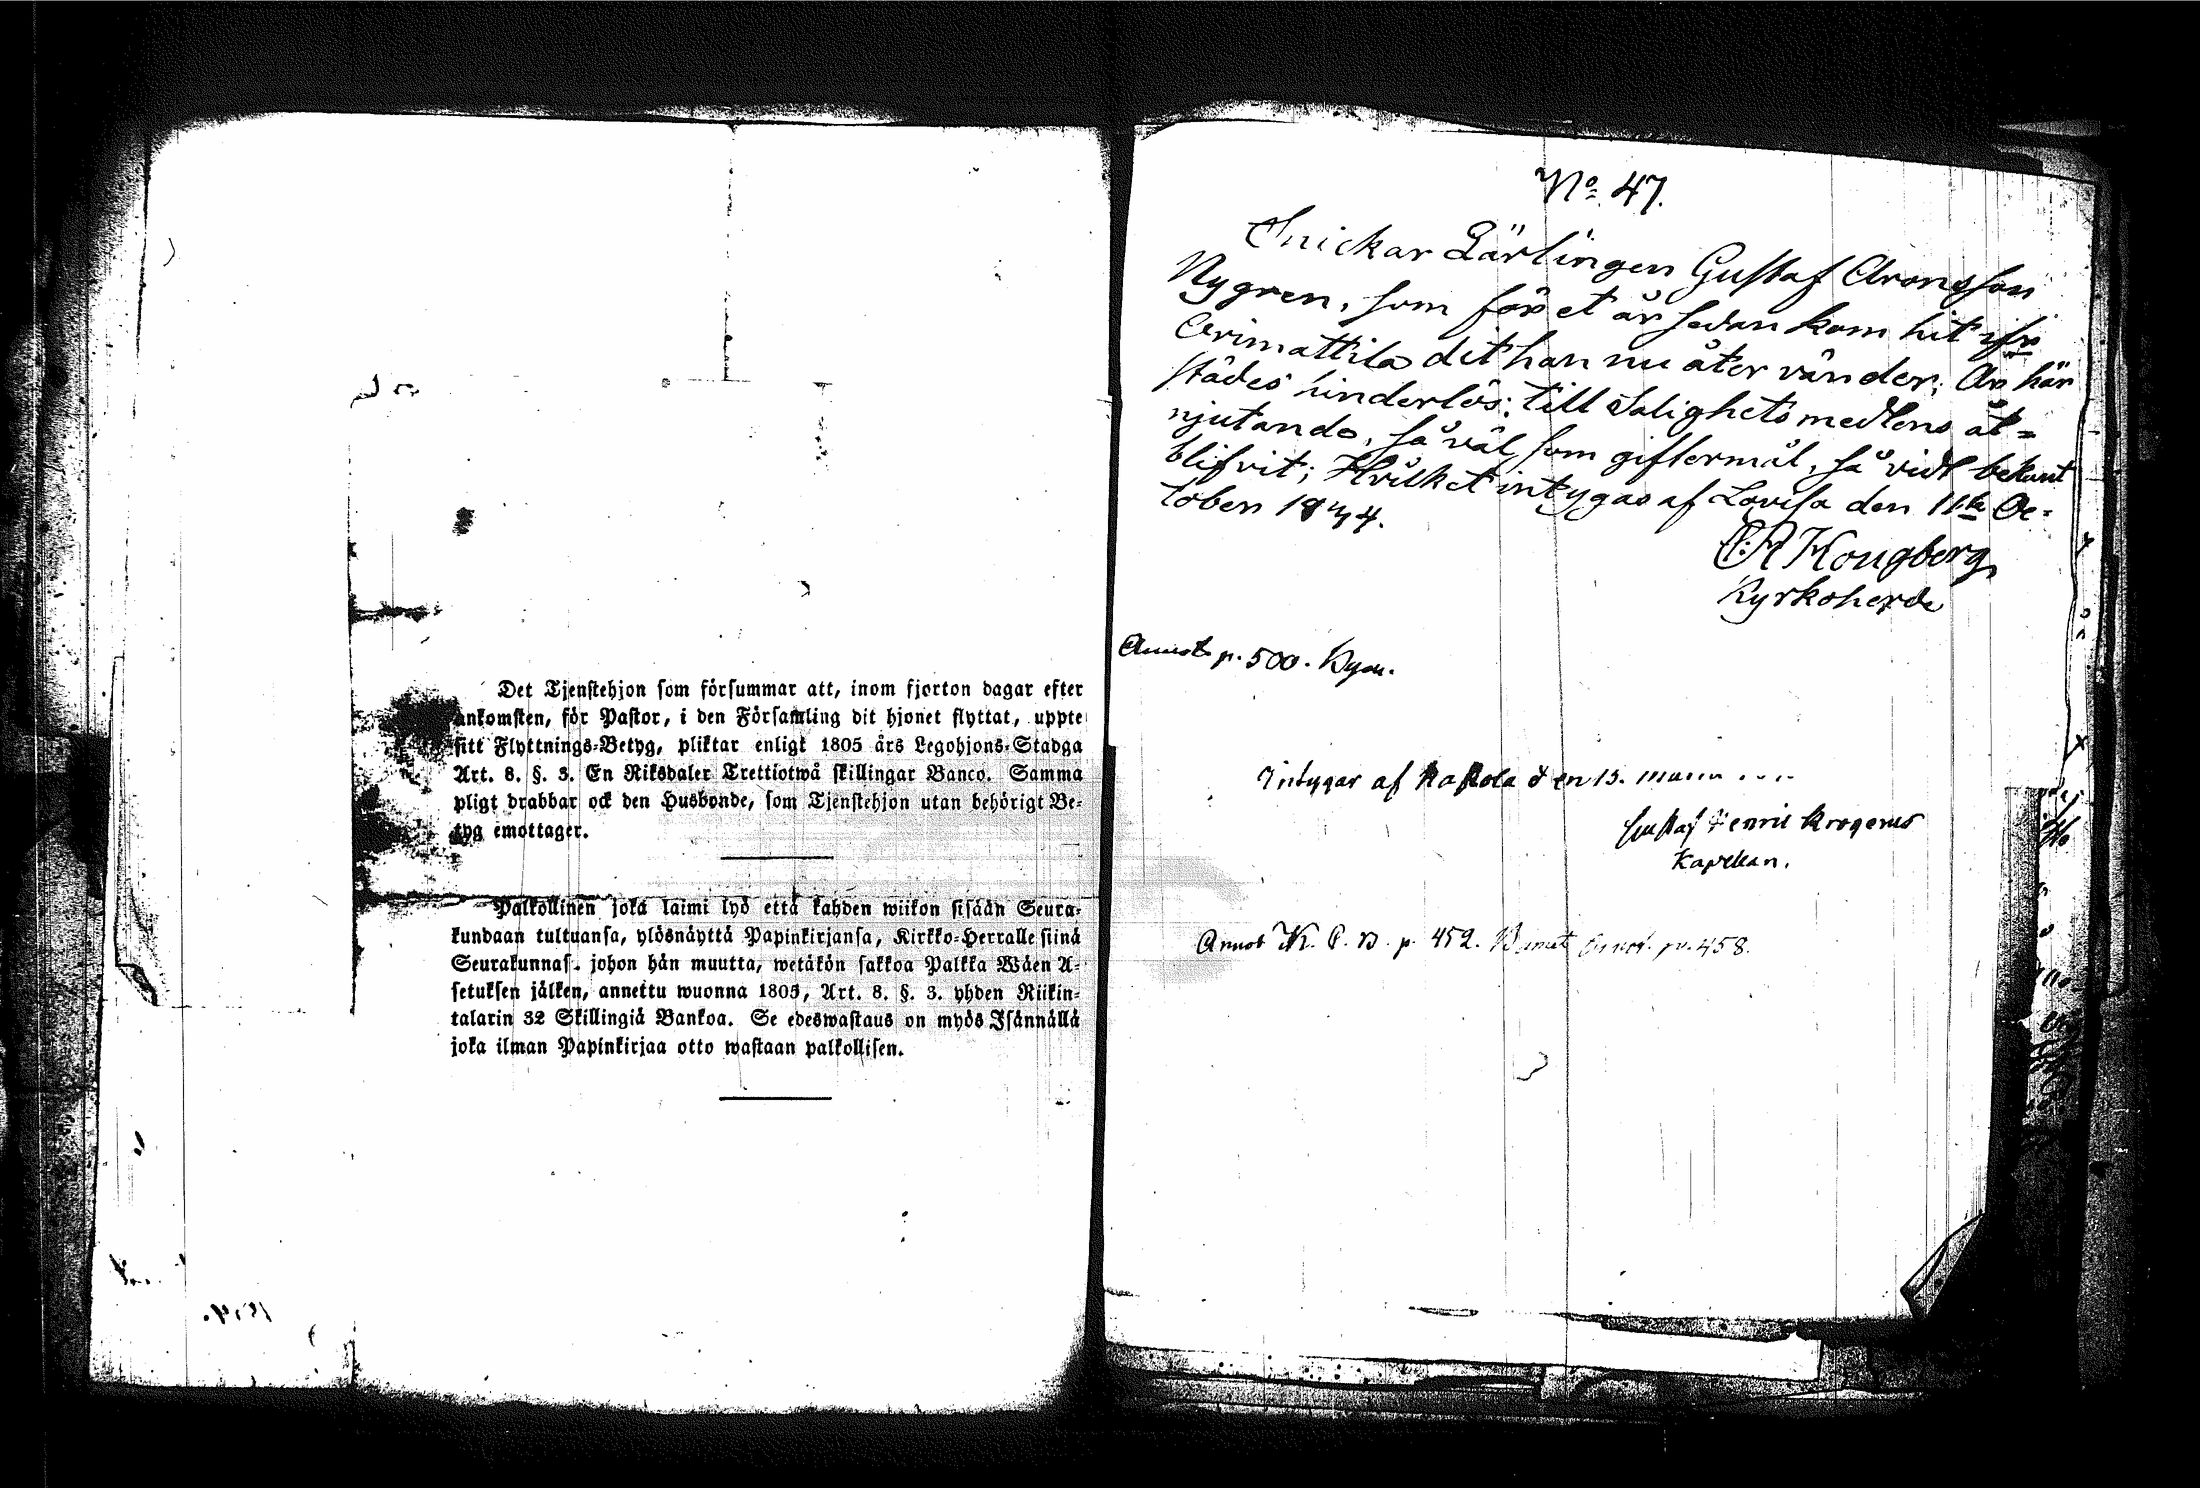 Det Tjenstehjon som försummar att, inom fjorton dagar efter
ankomsten, för Pastor, i den Församling dit hjonet flyttat, uppte
sitt Flyttnings-Betyg, pliktar enligt 1805 års Legohjons-Stadga
Art. 8. §. 3. En Riksdaler Trettiotwå skillingar Banco. Samma
pligt drabbar ock den Husbonde, som Tjenstehjon utan behörigt Be-
tyg emottager.
Palkollinen joka laimi lyö että kahden wiikon sisään Seura-
kundaan tultuansa, ylösnäyttä Papinkirjansa, Kirkko-Herralle siinä
Seurakunnas. johon hän muutta, wetäkön sakkoa Palkka Wäen A-
setuksen jälken, annettu wuonna 1805, Art. 8. §. 3. yhden Riikin-
talarin 32 Skillingiä Bankoa. Se edeswastaus on myös Isännällä
joka ilman Papinkirjaa otto wastaan palkollisen.
No. 47.
Snickar Lärlingen Gustaf Aronsson
Nygren, som för et år sedan kom hit ifr
Arimattila dit han nu åter vänder; Är här
städes hinderlös; till Salighetsmedlens åt=
njutande, så väl som giftermål, så vidt bekant
blifvit; Hvilket intygas af Lovisa den 11te Oc-
tober 1844.
Kougberg
Kyrkoherde
Annot. p. 500. Kym.
Intygar af Nastola den 13.
Gustaf Henric Krogerus
Kapellan.
Annot p. 452. Annot. p. 458.